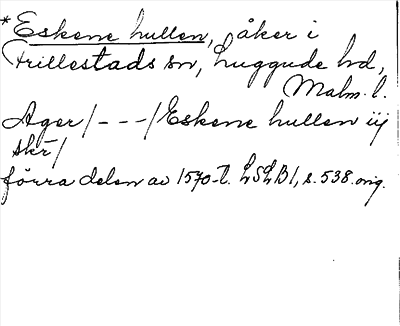 *Eskene hullen, åker i
Frillestads sn, Luggude hd,
Malm. l.
Ager/---/Eskene hullen iij
skr/
förra delen av 1570-t. LSLB1, s. 538. orig.